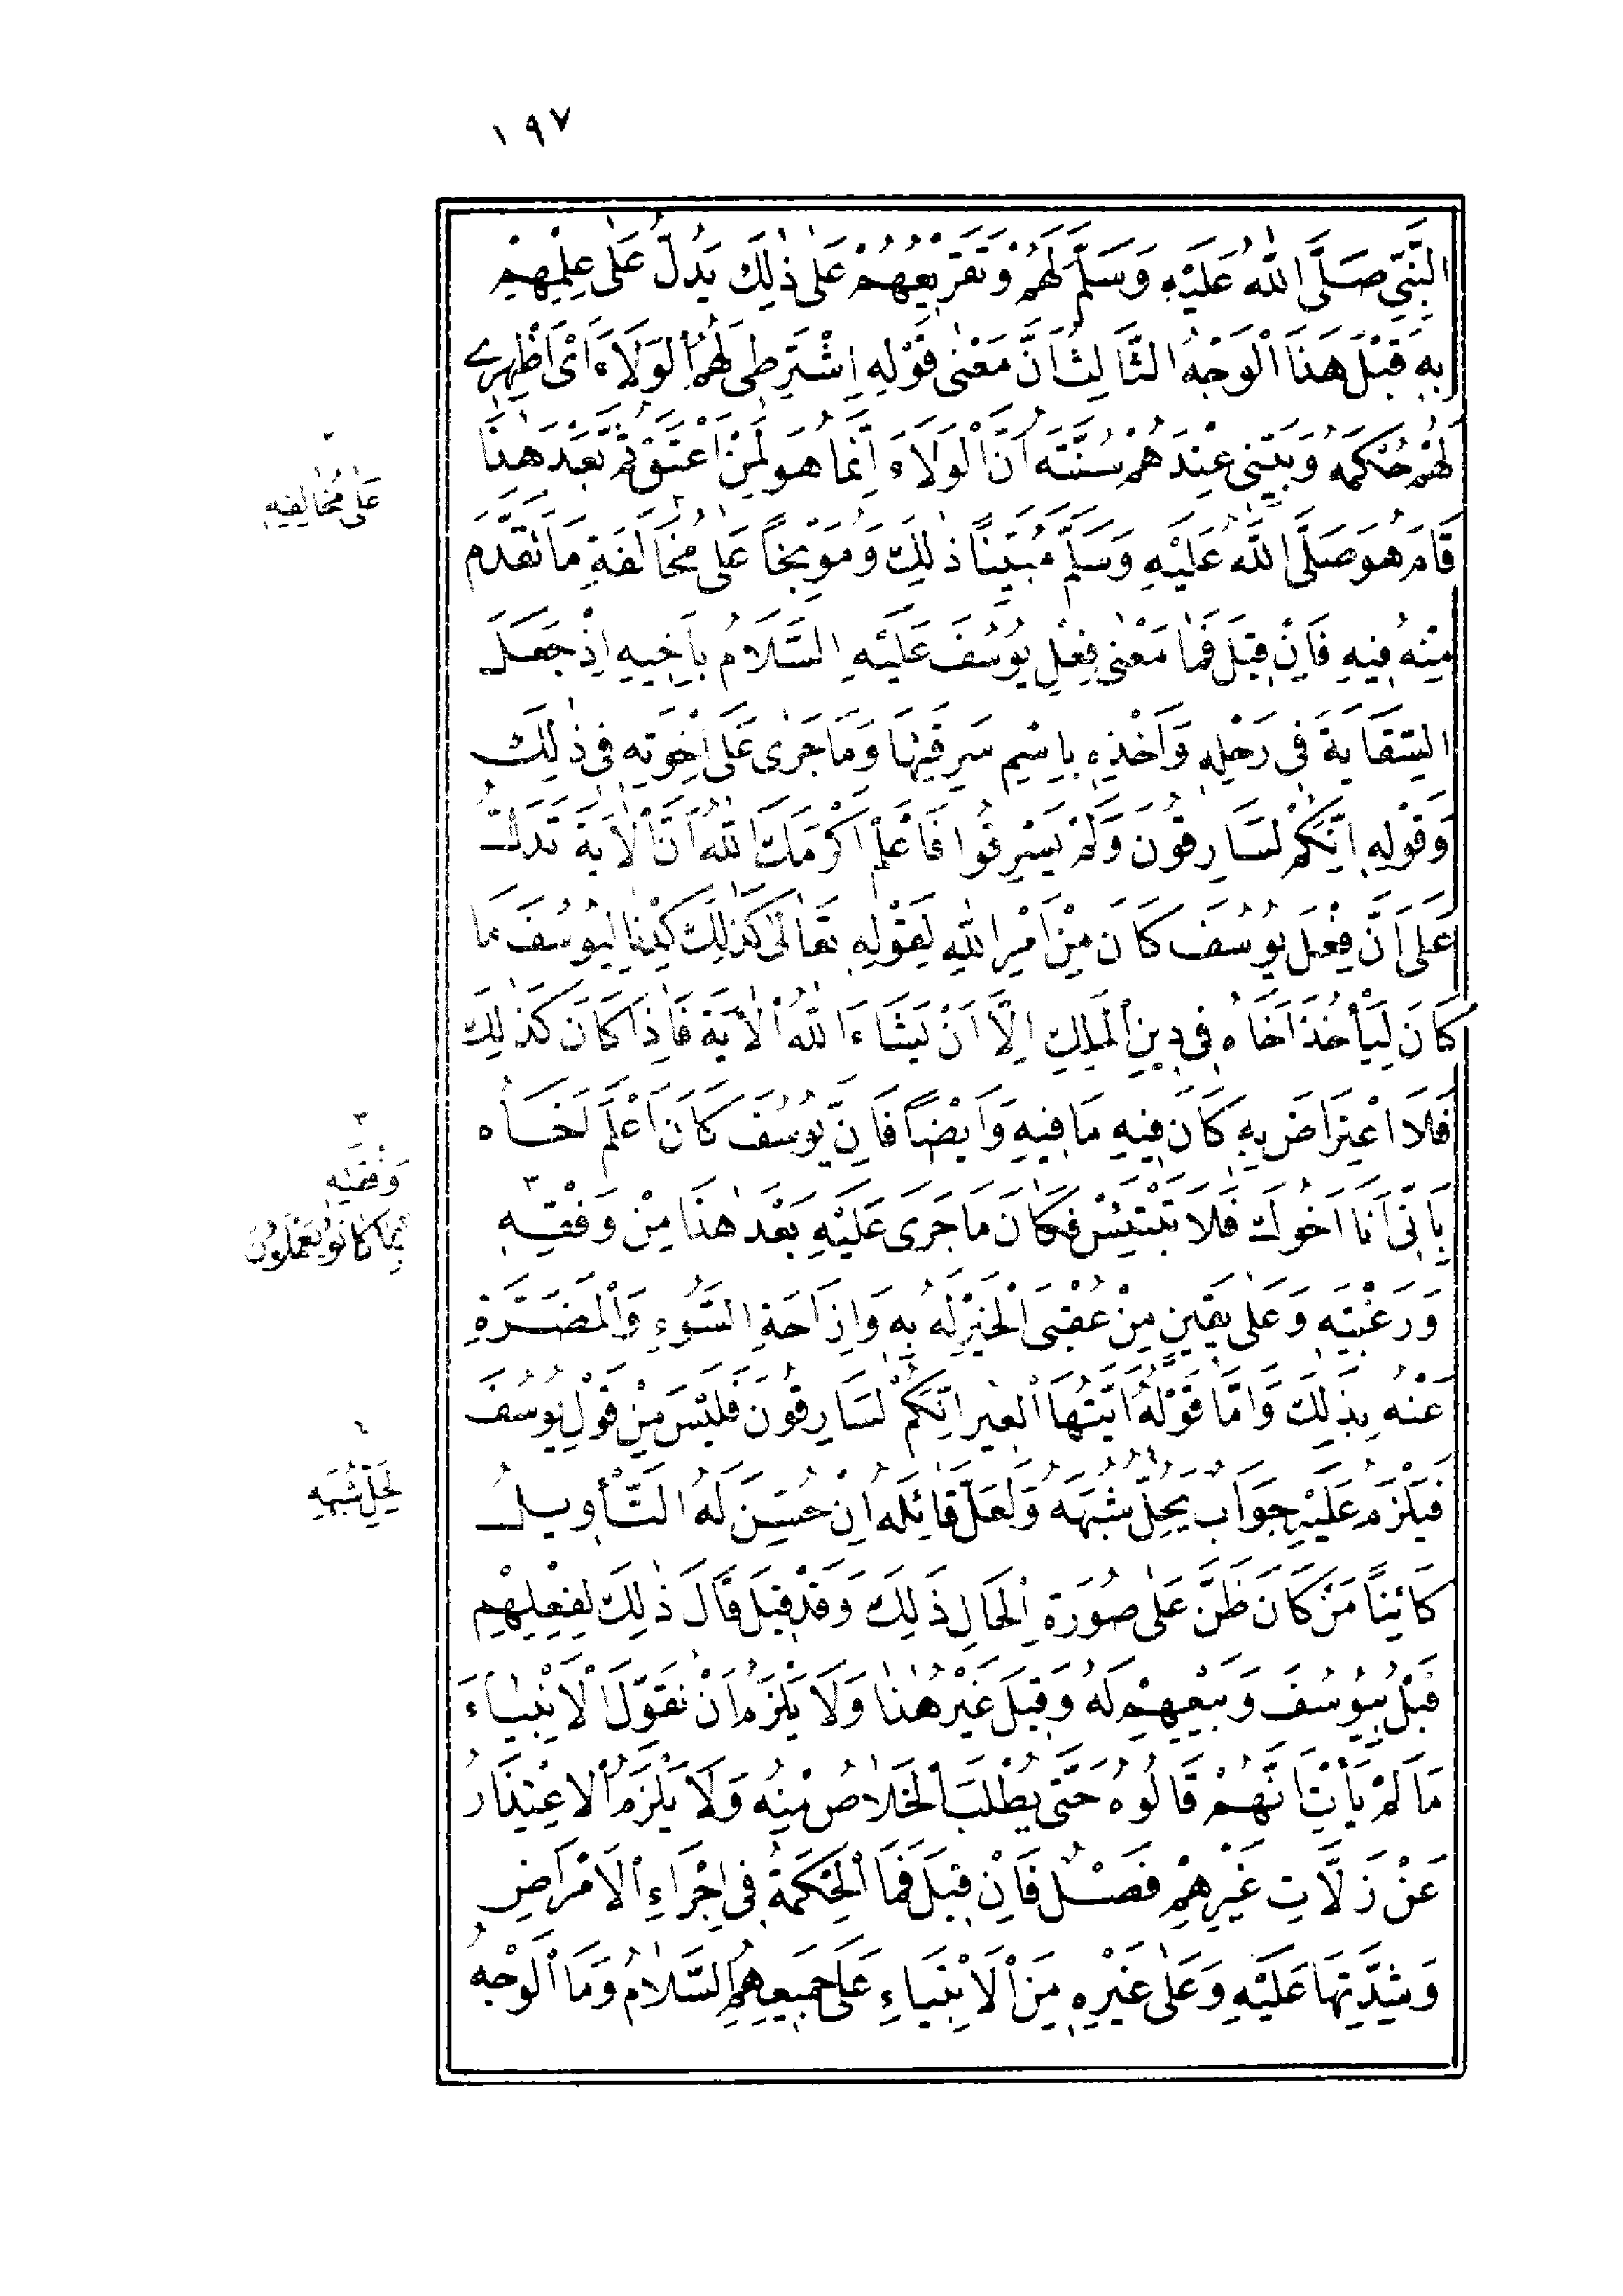 ١٩٧
النَّبِيِّ صَلَّى اللهُ عَلَيْهِ وَسَلَّمَ لَهُمْ وَتَقْرِيعُهُمْ عَلٰى ذٰلِكَ يَدُلُّ عَلٰى عِلْمِهِمْ
بِهِ قَبْلَ هٰذَا الْوَجْهُ الثَّالِثُ اَنَّ مَعْنٰى قَوْلِهِ اِشْتَرِطِى لَهُمُ الْوَلَاءَ اَىْ اَظْهِرِى
لَهُمْ حُكْمَهُ وَبَيِّنِى عِنْدَهُمْ سُنَّتَهُ اَنَّ الْوَلَاءَ اِنَّمَا هُوَ لِمَنْ اَعْتَقَ ثُمَّ بَعْدَ هٰذَا
قَامَ هُوَ صَلَّى اللهُ عَلَيْهِ وَسَلَّمَ مُبَيِّنًا ذٰلِكَ وَمُوَبِّخًا عَلٰى مُخَالَفَةِ مَا تَقَدَّمَ
مِنْهُ فِيهِ فَاِنْ قِيلَ فَمَا مَعْنٰى فِعْلِ يُوسُفَ عَلَيْهِ السَّلَامُ بِاَخِيهِ اِذْ جَعَلَ
السِّقَايَةَ فِى رَحْلِهِ وَاَخْذِهِ بِاسْمِ سَرِقَتِهَا وَمَا جَرٰى عَلٰى اِخْوَتِهِ فِى ذٰلِكَ
وَقَوْلِهِ اِنَّكُمْ لَسَارِقُونَ وَلَمْ يَسْرِقُوا فَاعْلَمْ اَكْرَمَكَ اللهُ اَنَّ الْاٰيَةَ تَدُلُّ
عَلٰى اَنَّ فِعْلَ يُوسُفَ كَانَ مِنْ اَمْرِ اللهِ لِقَوْلِهِ تَعَالٰى كَذٰلِكَ كِدْنَا لِيُوسُفَ مَا
كَانَ لِيَأْخُذَ اَخَاهُ فِى دِينِ الْمَلِكِ اِلَّا اَنْ يَشَاءَ اللهُ الْاٰيَةَ فَاِذَا كَانَ كَذٰلِكَ
فَلَا اعْتِرَاضَ بِهِ كَانَ فِيهِ مَا فِيهِ وَاَيْضًا فَاِنَّ يُوسُفَ كَانَ اَعْلَمَ اَخَاهُ
بِاَنِّى اَنَا اَخُوكَ فَلَا تَبْتَئِسْ فَكَانَ مَا جَرٰى عَلَيْهِ بَعْدَ هٰذَا مِنْ وَفْقِهِ
وَرَغْبَتِهِ وَعَلٰى يَقِينٍ مِنْ عُقْبَى الْخَيْرِ لَهُ بِهِ وَاِزَاحَةِ السُّوءِ وَالْمَضَرَّةِ
عَنْهُ بِذٰلِكَ وَاَمَّا قَوْلُهُ اَيَّتُهَا الْعِيرُ اِنَّكُمْ لَسَارِقُونَ فَلَيْسَ مِنْ قَوْلِ يُوسُفَ
فَيَلْزَمُ عَلَيْهِ جَوَابٌ يَحُلُّ شُبَهَهُ وَلَعَلَّ قَائِلَهُ اِنْ حُسِّنَ لَهُ التَّأْوِيلُ
كَائِنًا مَنْ كَانَ ظَنَّ عَلٰى صُورَةِ الْحَالِ ذٰلِكَ وَقَدْ قِيلَ قَالَ ذٰلِكَ لِفِعْلِهِمْ
قَبْلُ بِيُوسُفَ وَبَيْعِهِمْ لَهُ وَقِيلَ غَيْرُ هٰذَا وَلَا يَلْزَمُ اَنْ نُقَوِّلَ الْاَنْبِيَاءَ
مَا لَمْ يَأْتِ اَنَّهُمْ قَالُوهُ حَتّٰى يُطْلَبَ الْخَلَاصُ مِنْهُ وَلَا يَلْزَمُ الْاِعْتِذَارُ
عَنْ زَلَّاتِ غَيْرِهِمْ فَصْلٌ فَاِنْ قِيلَ فَمَا الْحِكْمَةُ فِى اِجْرَاءِ الْاَمْرَاضِ
وَشِدَّتِهَا عَلَيْهِ وَعَلٰى غَيْرِهِ مِنَ الْاَنْبِيَاءِ عَلٰى جَمِيعِهِمُ السَّلَامُ وَمَا الْوَجْهُ
٢
عَلٰى مُخَالِفِيهِ
٣
وَفْقِهِ
بِمَا كَانُوا يَعْمَلُونَ
٦
لِحَلِّ شُبَهِهِ